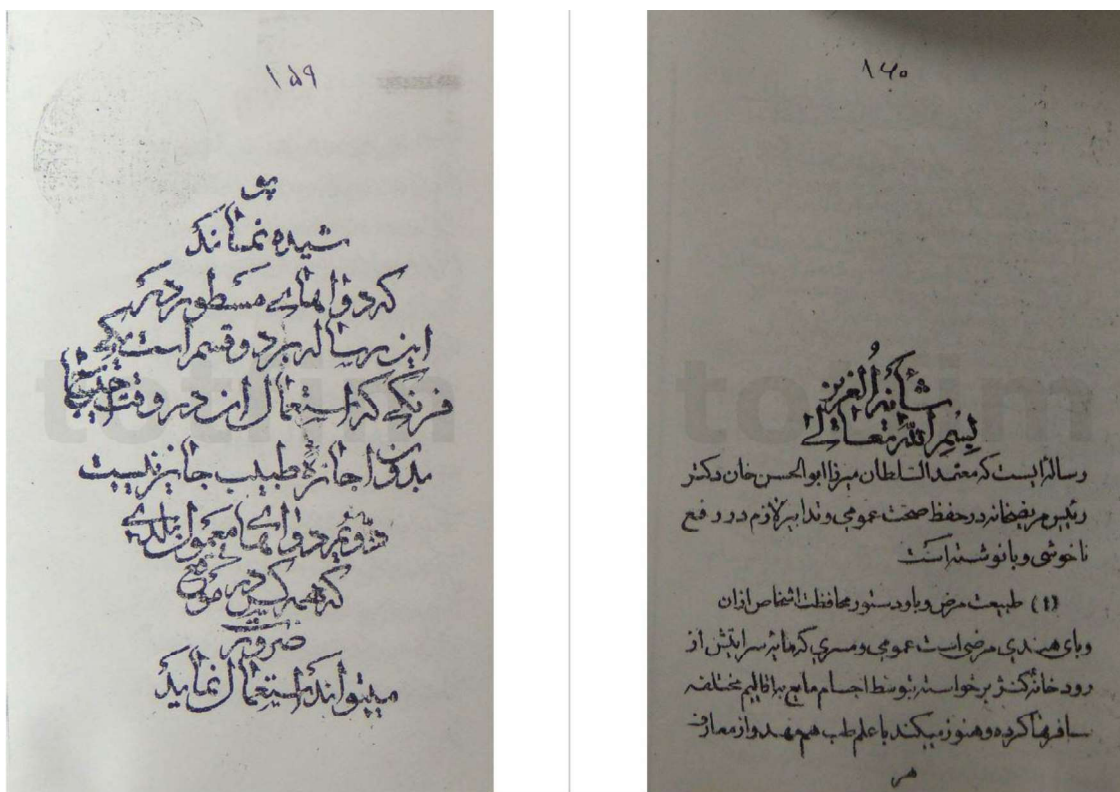 ۱۵۹
پو
شیده نماند
که دواهای مسطور در
این رساله بر دو قسم است یکی
فرنگی که استعمال ان در وقت احتیاج
بدون اجازه طبیب جایز نیست
دویم دواهای معمول بلدی
که هر کس در موقع
ضرورت
میتواند استعمال نماید
۱۶۰
شأنه العزیز
بسم الله تعالی
رساله ایست که معتمد السلطان میرزا ابوالحسن خان دکتر
رئیس مریضخانه در حفظ صحت عمومی و تدابیر لازم در رفع
ناخوشی وبا نوشته است
(۱) طبیعت مرض وبا و دستور محافظت اشخاص ازان
وبای هندی مرضی است عمومی و مسری که مایه سرایتش از
رودخانه کنژ برخواسته بتوسط اجسام مایع باقالیم مختلفه
سافرتها کرده و هنوز میکند با علم طب هم عهد و از معارف
هر
totfim
totfim